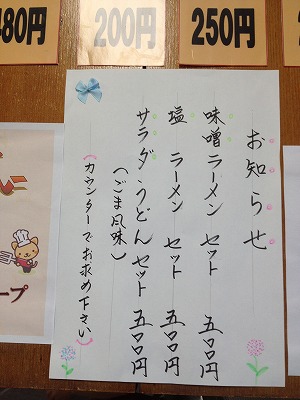 480円
200円
250円
お知らせ
味噌ラーメン セット 五〇〇円
塩 ラーメン セット 五〇〇円
サラダ・うどんセット 五〇〇円
(ごま風味)
(カウンターでお求め下さい)
ープ